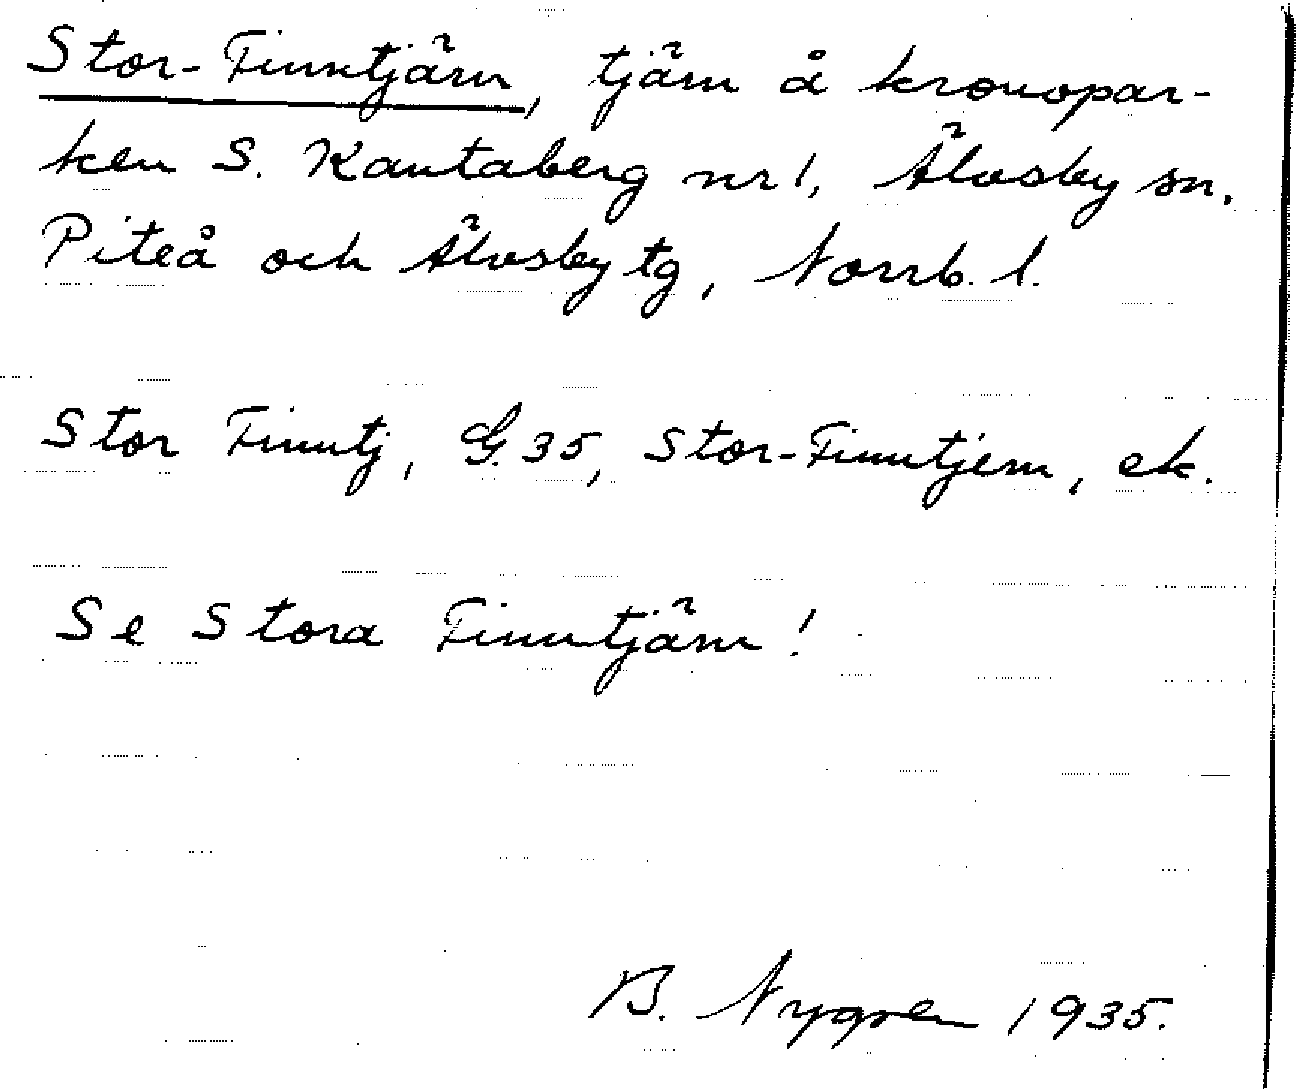 Stor-Finntjärn, tjärn å kronopar-
ken S. Kantaberg nr 1, Älvsby sn.
Piteå och Älvsby tg, Norrb. l.
Stor Finntj, G.35, Stor-Finntjern, ek.
Se Stora Finntjärn!
B. Nygren 1935.